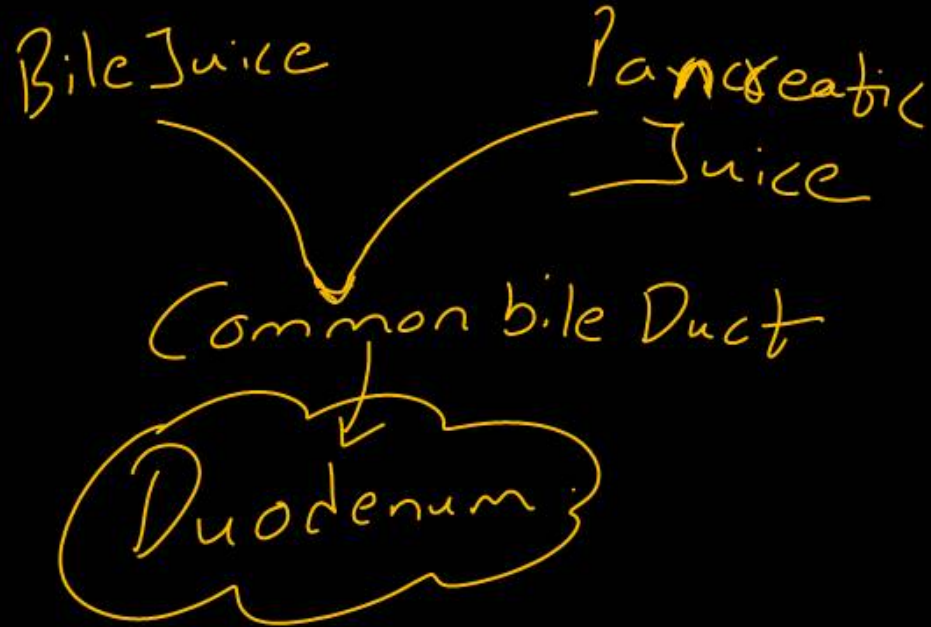 Bile Juice
Pancreatic
Juice
Common bile Duct
Duodenum